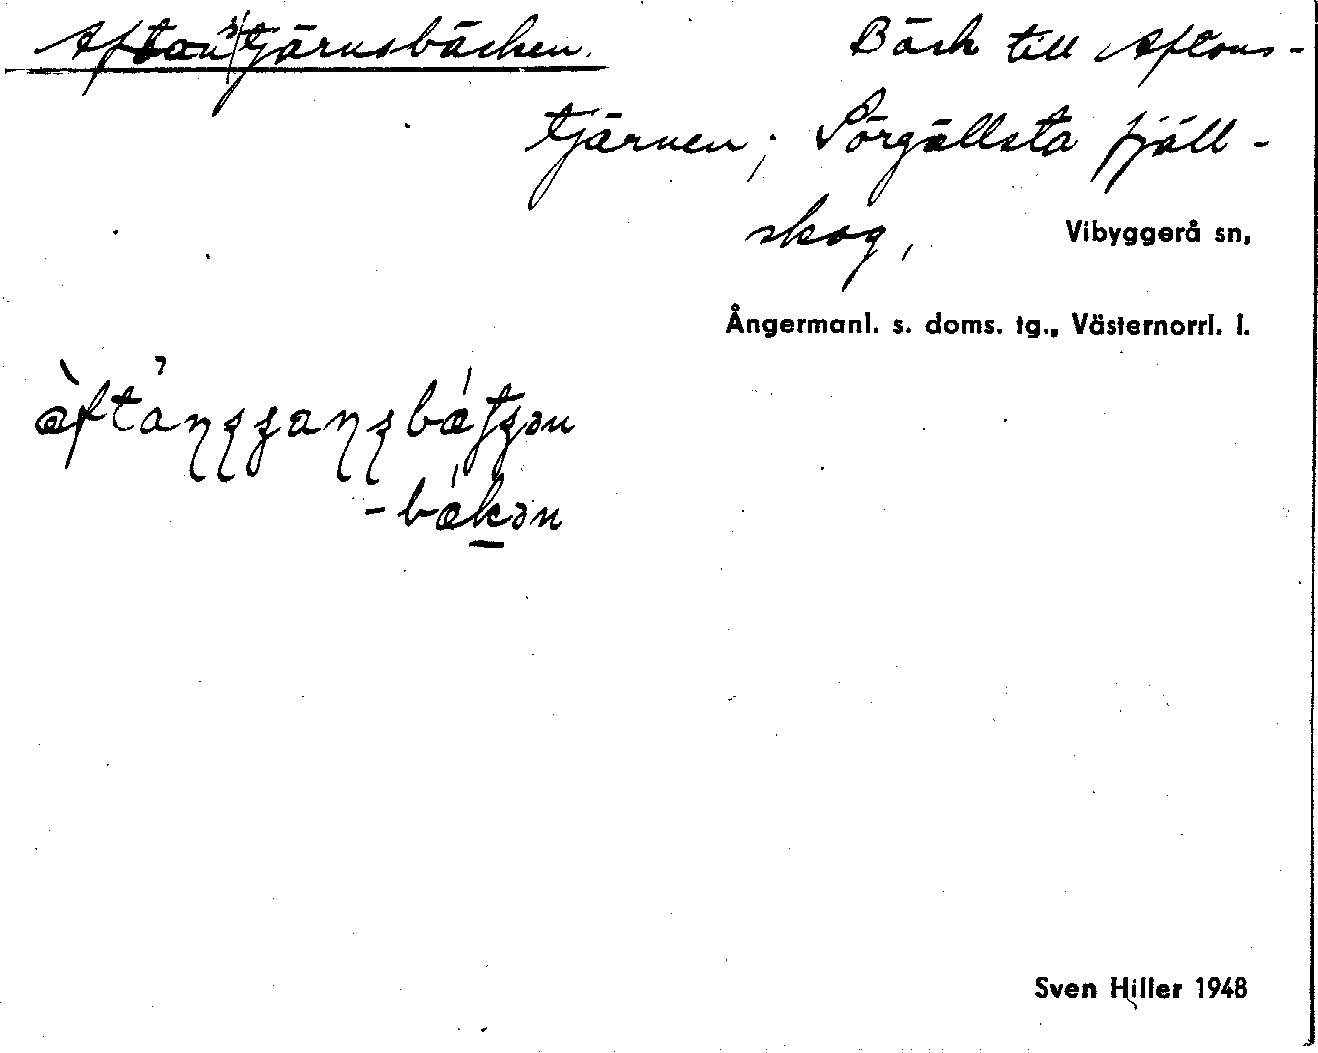 Aftonstjärnsbäcken. Bäck till Aftons-
tjärnen; Sörgällsta fjäll-
skog, Vibyggerå sn,
Ångermanl. s. doms. tg., Västernorrl. l.
-bäkən
Sven Hiller 1948